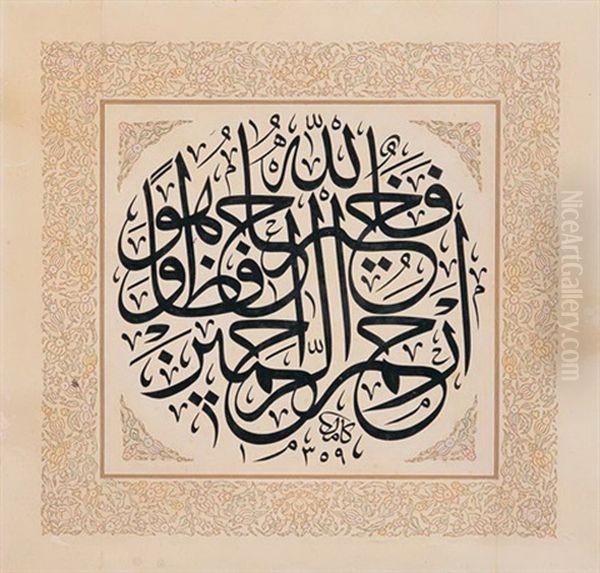 فَاللهُ خَيْرٌ حَافِظًا وَهُوَ أَرْحَمُ الرَّاحِمِينَ
كامل
١٣٥٩
NiceArtGallery.com